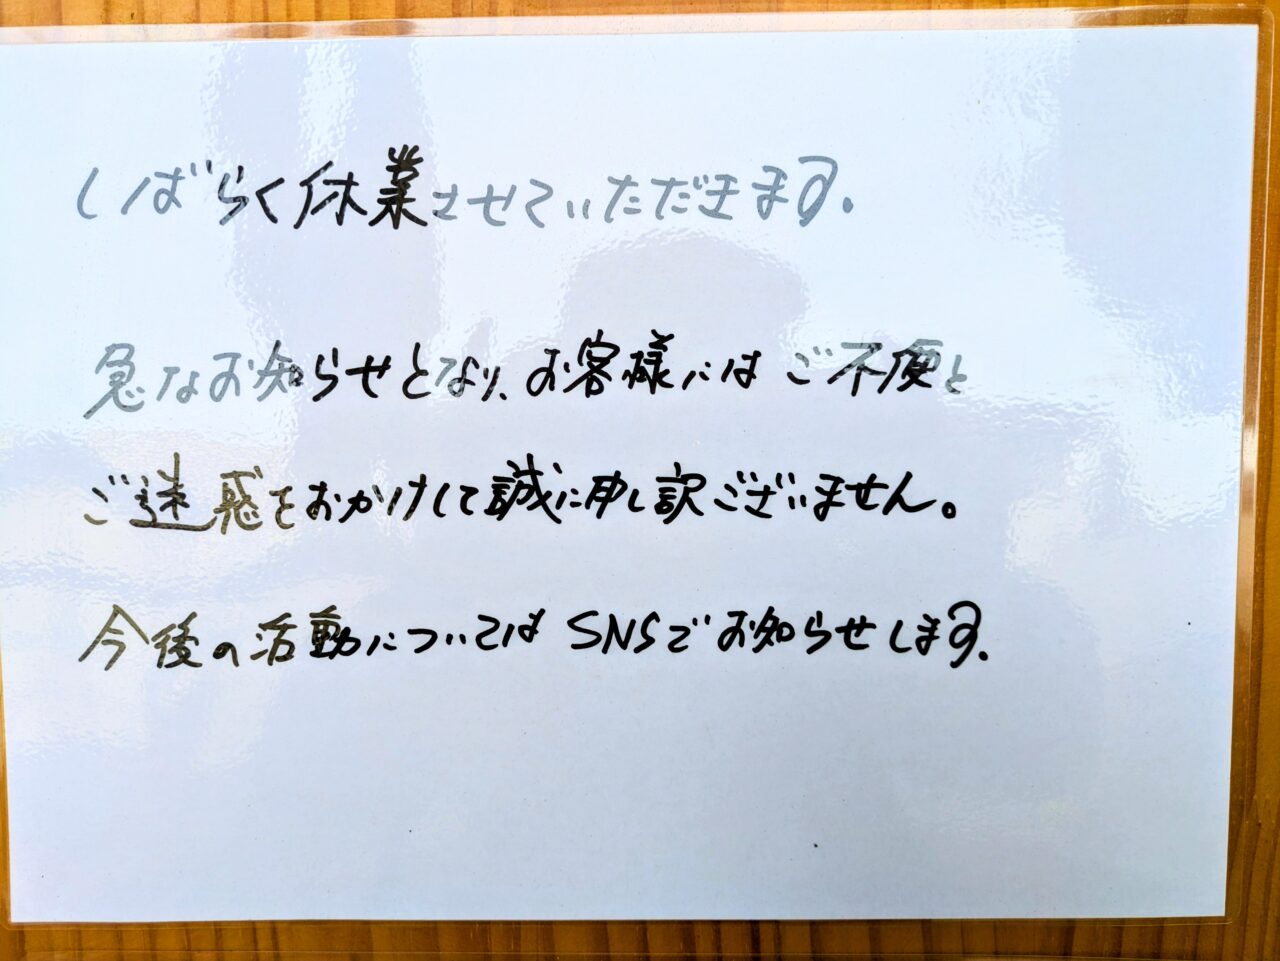 しばらく休業させていただきます.
急なお知らせとなり、お客様にはご不便と
ご迷惑をおかけして誠に申し訳ございません。
今後の活動についてはSNSでお知らせします.